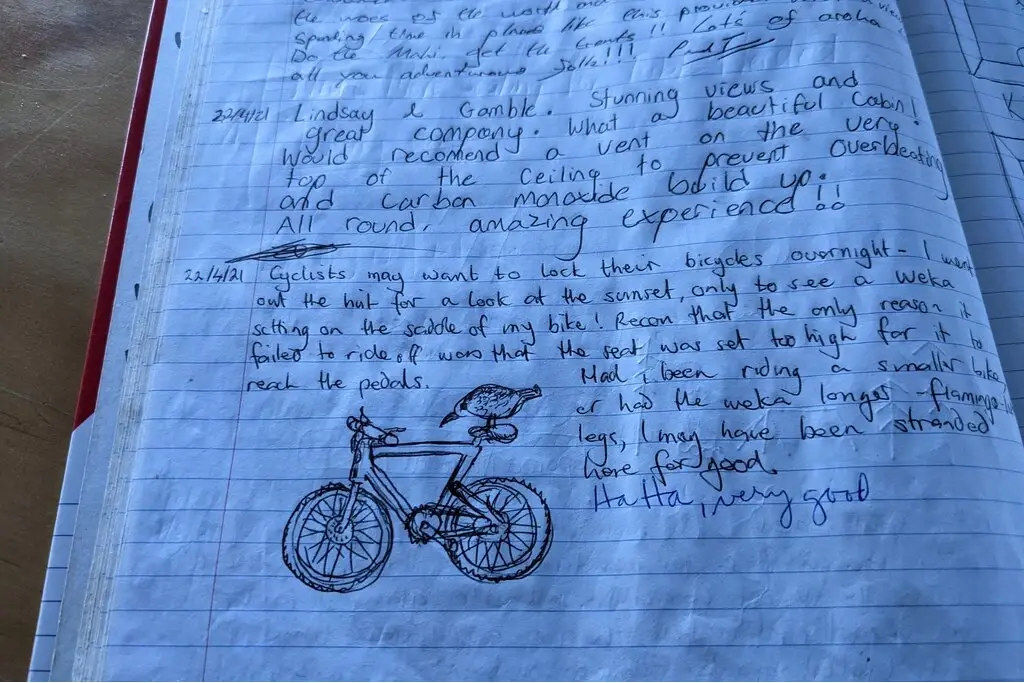 the woes of the world and
spending time in places like this provides
Do the Mahi, get the treats!! Lots of aroha
all you adventurous folk!!!
22/4/21 Lindsay & Gamble. Stunning views and
great company. What a beautiful Cabin!
Would recomend a vent on the very
top of the ceiling to prevent overheating
and carbon monoxide build up!!
All round, amazing experience!!
22/4/21 Cyclists may want to lock their bicycles overnight - I went
out the hut for a look at the sunset, only to see a weka
sitting on the saddle of my bike! Recon that the only reason it
failed to ride off was that the seat was set too high for it to
reach the pedals. Had i been riding a smaller bike,
or had the weka longer - flamingo-
legs, I may have been stranded
here for good.
Ha Ha, very good